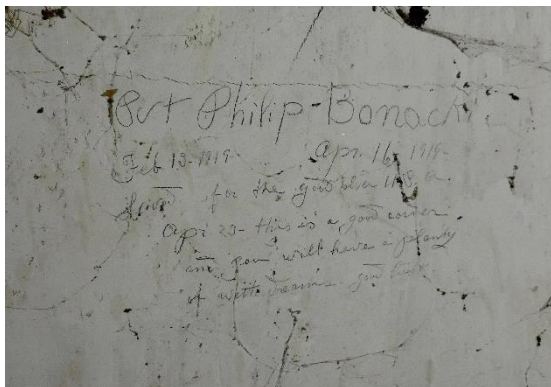 Pvt Philip-Bonacki
Feb 13-1919 Apr-16-1919
for the
Apr 20-this is a good corner
and you will have a plenty
of good luck